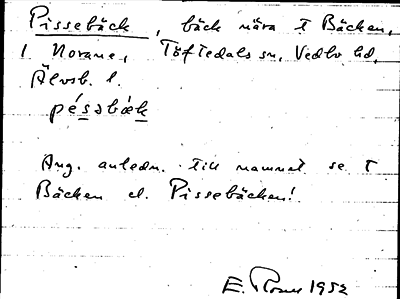 Pissebäck, bäck nära t Bäcken,
l Norane, Töftedals sn, Vedbo hd,
Älvsb. l.
pésəbæk
Ang. anledn. till namnet se t
Bäcken el. Pissebäcken!
E. 1952